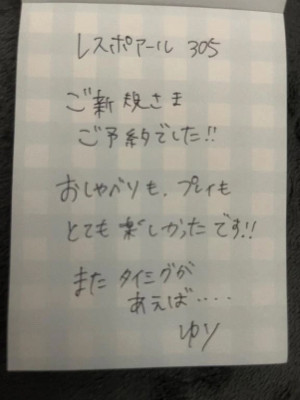 レスポアール 305
ご新規さま
ご予約でした!!
おしゃべりも、プレイも
とても楽しかったです!!
またタイミングが
あえば....
ゆり